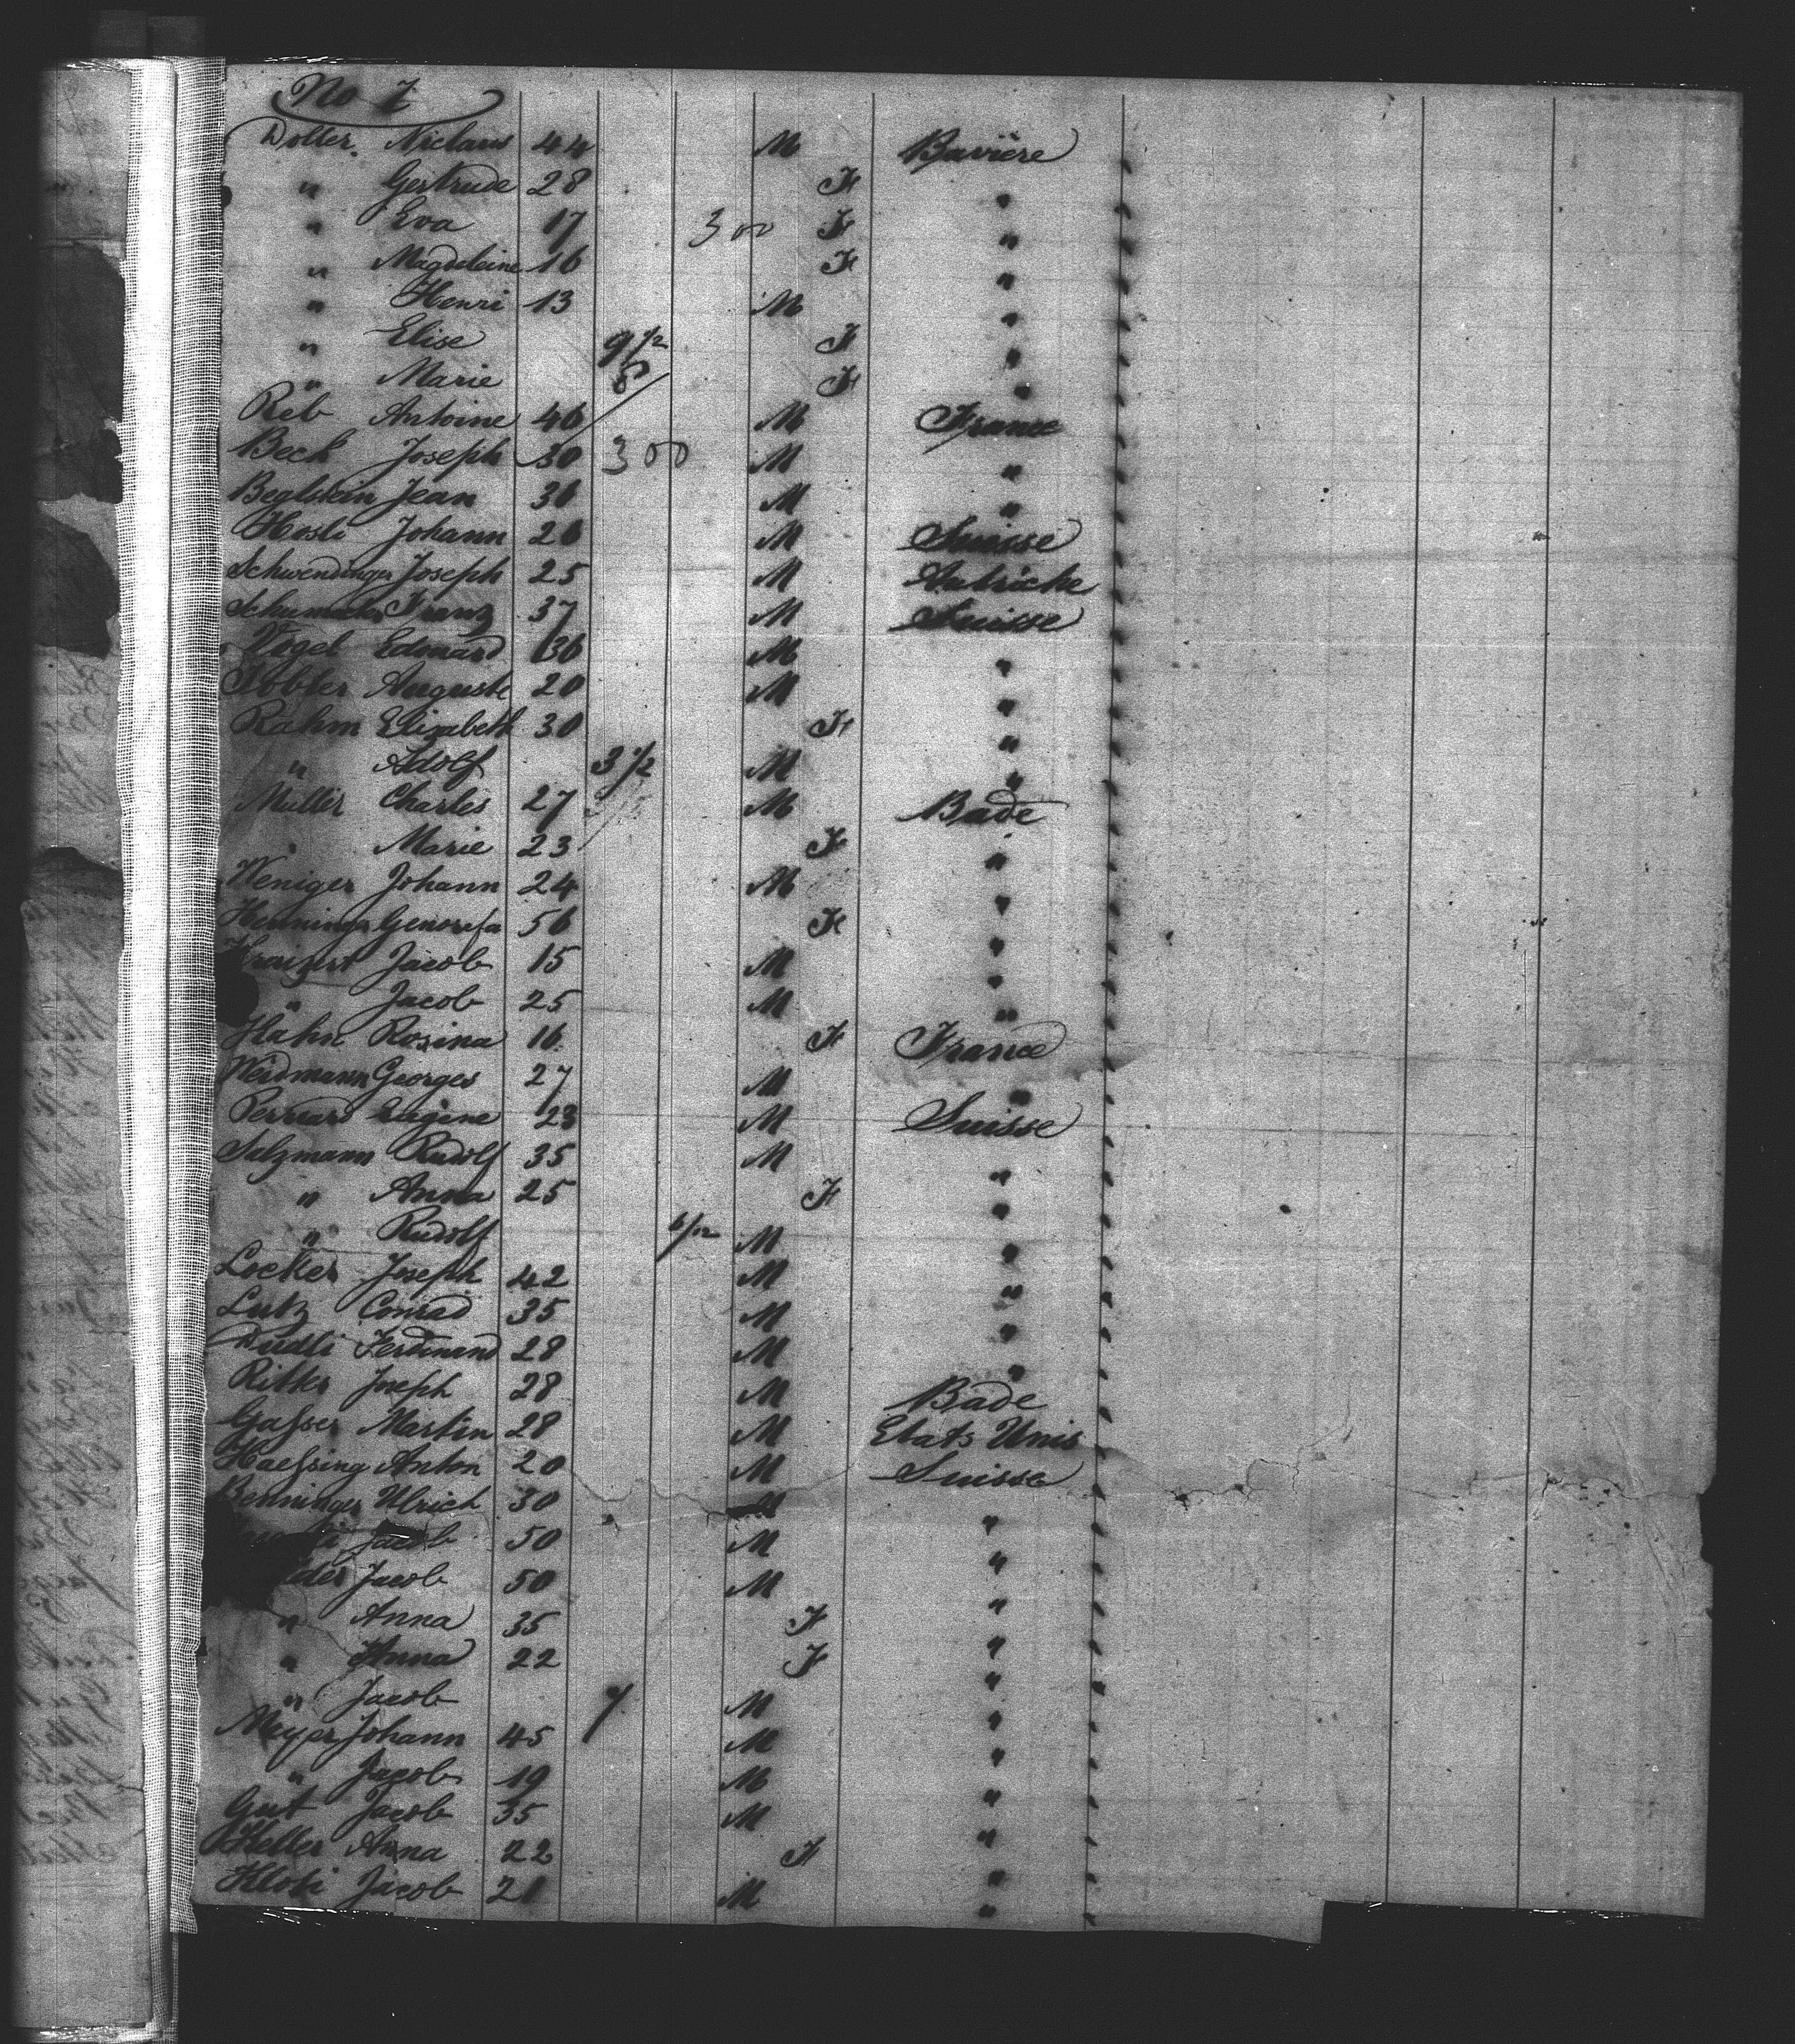 No 7
Dolter Niclaus 44 M Bavière
" Gertrude 28 F "
" Eva 17 300 F "
" Magdeleine 16 F "
" Henri 13 M "
" Elise 9 1/2 F "
" Marie 8 F "
Reb Antoine 46 M France
Beck Joseph 30 300 M "
Beglstein Jean 36 M "
Hosli Johann 26 M Suisse
Schwendinger Joseph 25 M Autriche
Schumacher Franz 37 M Suisse
Vogel Edouard 36 M "
Tobler Auguste 20 M "
Rahm Elisabeth 30 F "
" Adolf 3 1/2 M "
Muller Charles 27 M Bade
" Marie 23 F "
Weniger Johann 24 M "
Henninger Genovefa 56 F "
Jacob 15 M "
" Jacob 25 M "
Hahn Rosina 16 F France
Weidmann Georges 27 M "
Perruard Eugène 23 M Suisse
Salzmann Rudolf 35 M "
" Anna 25 F "
" Rudolf 6/12 M "
Locker Joseph 42 M "
Lutz Conrad 35 M "
Dudli Ferdinand 28 M "
Ritter Joseph 28 M Bade
Gasser Martin 28 M Etats Unis
Haessing Anton 20 M Suisse
Benninger Ulrich 30 M "
Jacob 50 M "
der Jacob 50 M "
" Anna 35 F "
" Anna 22 F "
" Jacob 7 M "
Meyer Johann 45 M "
" Jacob 19 M "
Gut Jacob 35 M "
Keller Anna 22 F "
Kloti Jacob 21 M "